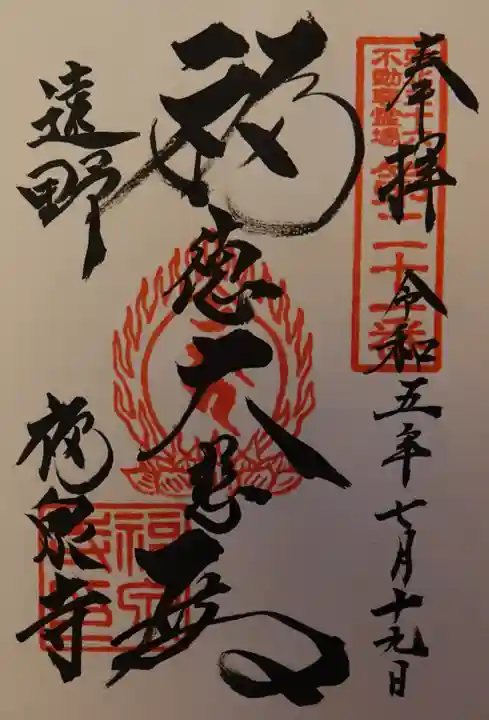 奉拝
令和五年七月十九日
不動尊霊場
第二十二番
福徳大悲殿
遠野
福泉寺